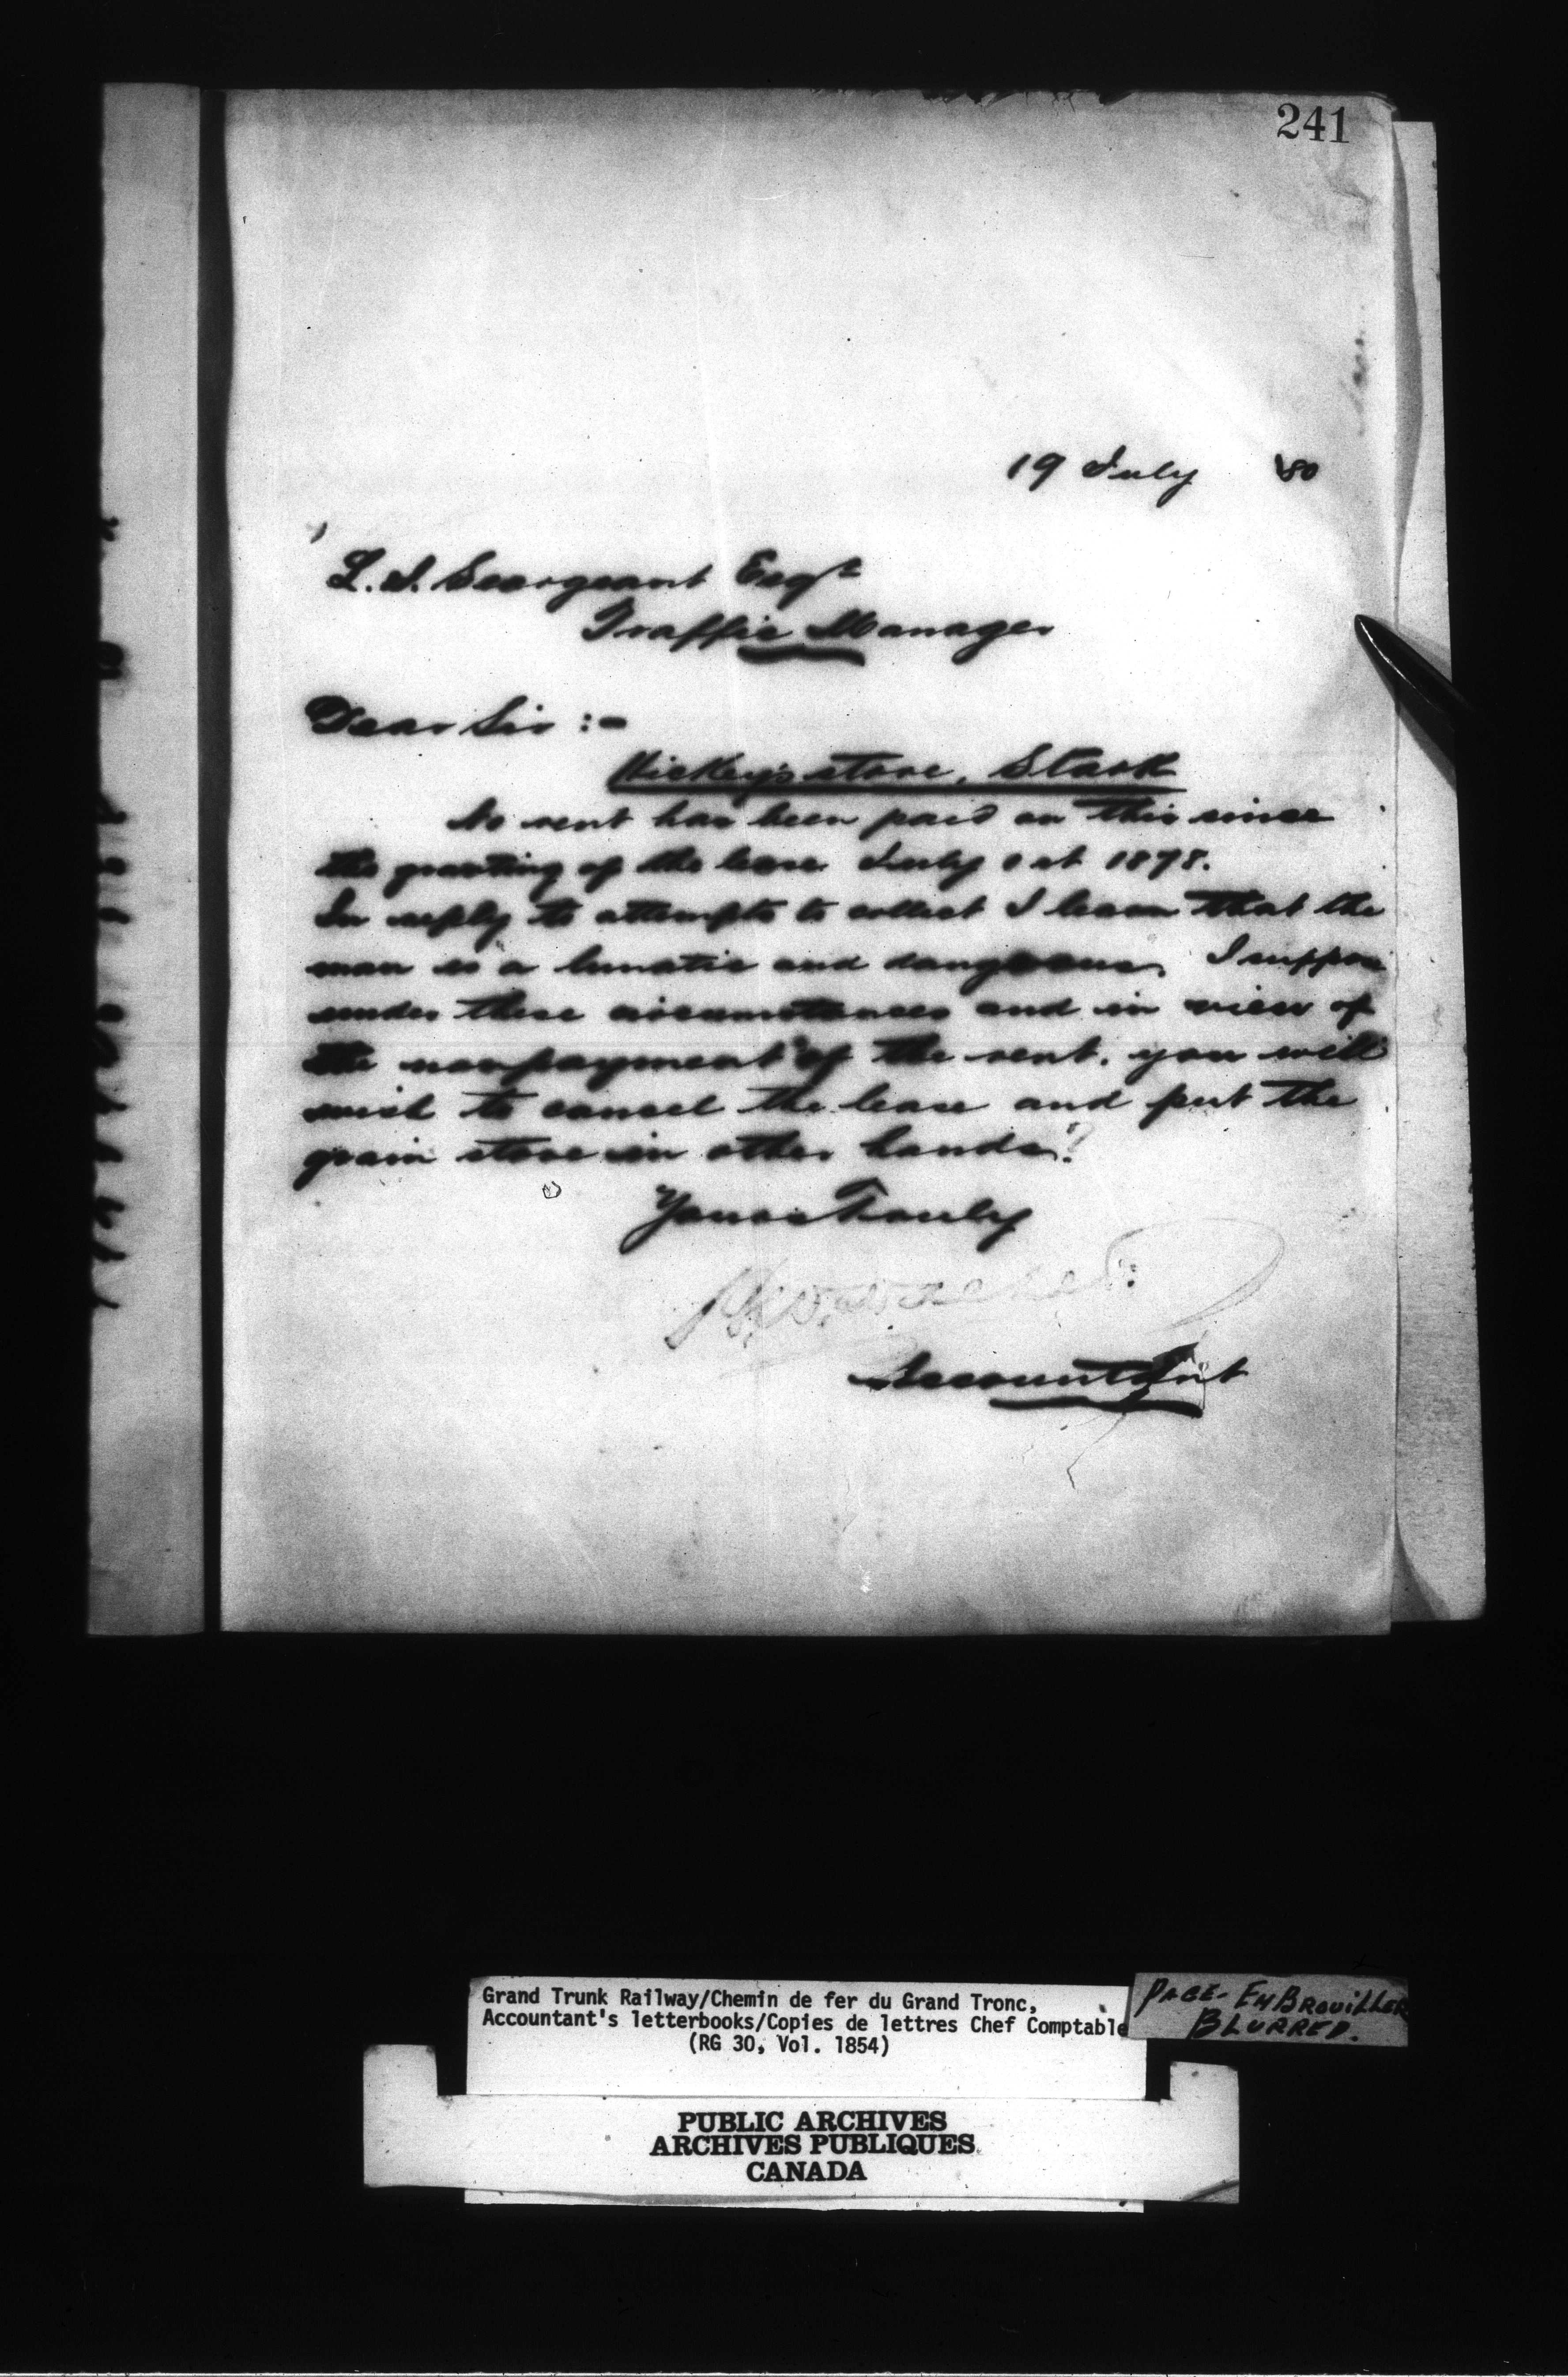 241
19 July '80
L. J. Seargeant Esqr
Traffic Manager
Dear Sir :-
Hickey's store, Stark
No rent has been paid on this since
the granting of the lease July 1st 1878.
In reply to attempts to collect I learn that the
man is a lunatic and dangerous. I suppose
under these circumstances and in view of
the nonpayment of the rent. you will
wish to cancel the lease and put the
grain store in other hands?
Yours Truly
Accountant
Grand Trunk Railway/Chemin de fer du Grand Tronc,
Accountant's letterbooks/Copies de lettres Chef Comptable
(RG 30, Vol. 1854)
PAGE - EMBROUILLER
BLURRED.
PUBLIC ARCHIVES
ARCHIVES PUBLIQUES
CANADA